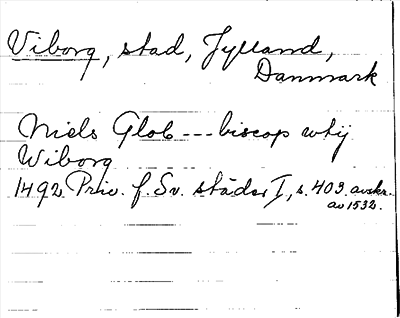 Viborg, stad, Jylland,
Danmark
Niels Glob --- biscop wtij
Wiborg
1492 Priv. f. Sv. städer I, s. 403. avskr.
av 1532.